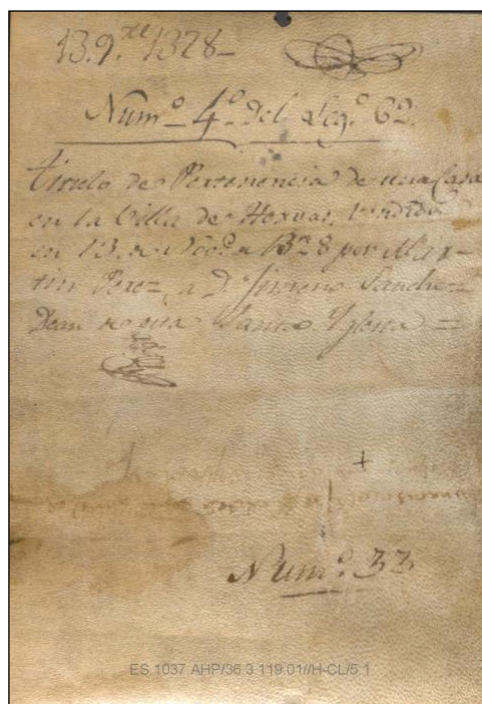 13. 9.re 1328-
Numº 4º Del Legº 62.
titulo de Pertenencia de una Casa
en la Villa de Hervas, vendida
en 13. de Nobe. de 1328 por Mar-
tin Perez, a D. Sanchez
Dean de esta Santa Yglesia =
+
Numº 33
ES.1037.AHP/36.3.119.01//H-CL/5.1